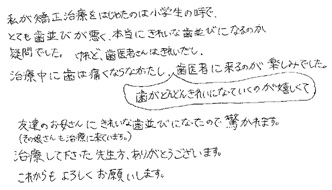 私が矯正治療をはじめたのは小学生の時で、
とても歯並びが悪く、本当にきれいな歯並びになるのか
疑問でした。けれど、歯医者さんはきらいだし、
治療中に歯は痛くならなかたし、歯医者に来るのが楽しみでした。
歯がどんどんきれいになっていくのが嬉しくて
友達のお母さんにきれいな歯並びになったので驚かれます。
(その娘さんも治療に来ています。)
治療して下さった先生方、ありがとうございます。
これからもよろしくお願いします。